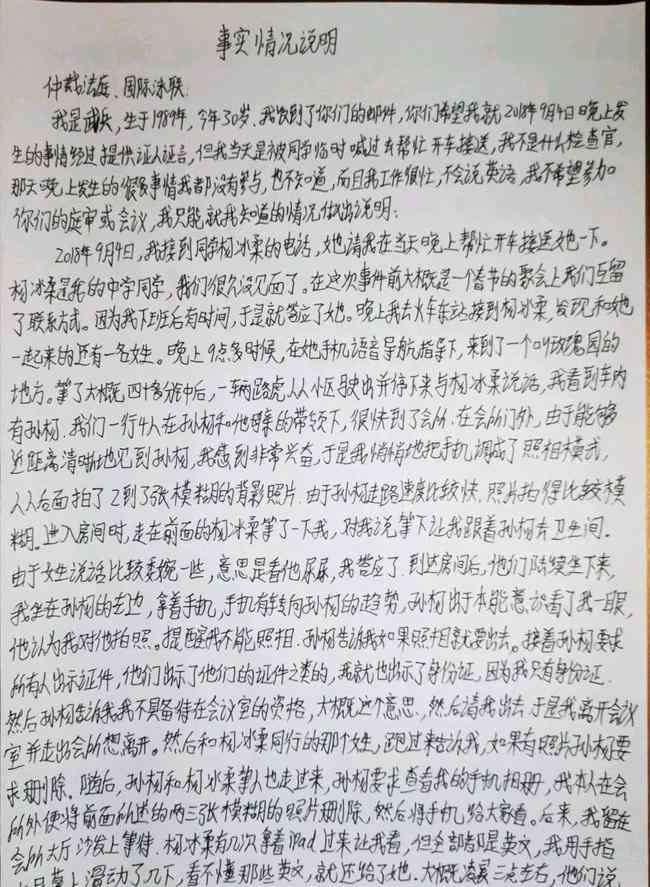 事实情况说明
仲裁法庭、国际泳联:
我是 ,生于1989年,今年30岁、我收到了你们的邮件,你们希望我就2018年9月4日晚上发
生的事情经过提供证人证言,但我当天是被同学临时喊过去帮忙开车接送,我不是什么检查官,
那天晚上发生的很多事情我都没有参与,也不知道,而且我工作很忙,不会说英语,我不希望参加
你们的庭审或会议,我只能就我知道的情况做出说明:
2018年9月4日,我接到同学杨冰柔的电话,她请我在当天晚上帮忙开车接送她一下。
杨冰柔是我的中学同学,我们很久没见面了。在这次事件前大概是一个春节的聚会上我们互留
了联系方式。因为我下班后有时间,于是就答应了她。晚上我去火车东站接到杨冰柔,发现和她
一起来的还有一名女生。晚上9点多时候,在她手机语音导航指导下,来到了一个叫玫瑰园的
地方。等了大概四十多分钟后,一辆路虎从小区驶出并停下来与杨冰柔说话,我看到车内
有孙杨.我们一行4人在孙杨和他母亲的带领下,很快到了会所.在会所门外,由于能够
近距离清晰地见到孙杨,我感到非常兴奋,于是我悄悄地把手机调成了照相模式,
从后面拍了2到了3张模糊的背影照片.由于孙杨走路速度比较快.照片拍得比较模
糊。进入房间时,走在前面的杨冰柔等了一下我,对我说等下让我跟着孙杨去卫生间.
由于女生说话比较委婉一些,意思是看他尿尿,我答应了.到达房间后,他们陆续坐下来,
我坐在孙杨的左边,拿着手机,手机有转向孙杨的趋势,孙杨出于本能意识看了我一眼,
他认为我对他拍照。提醒我不能照相.孙杨告诉我如果照相就要出去。接着孙杨要求
所有人出示证件,他们出示了他们的证件之类的,我就也出示了身份证,因为我只有身份证.
然后孙杨告诉我我不具备待在会议室的资格,大概这个意思,然后请我出去.于是我离开会议
室并走出会所想离开。然后和杨冰柔同行的那个女生,跑过来告诉我,如果有照片孙杨要
求删除.随后,孙杨和杨冰柔等人也走过来,孙杨要求查看我的手机相册,我本人在会
所外便将前面所述的两三张模糊的照片删除,然后将手机给大家看。后来,我留在
会所大厅沙发上等待.杨冰柔有几次拿着iPad过来让我看,但全部都是英文,我用手指
在屏幕上滑动了几下,看不懂那些英文,就还给了她.大概凌晨三点左右,他们说,